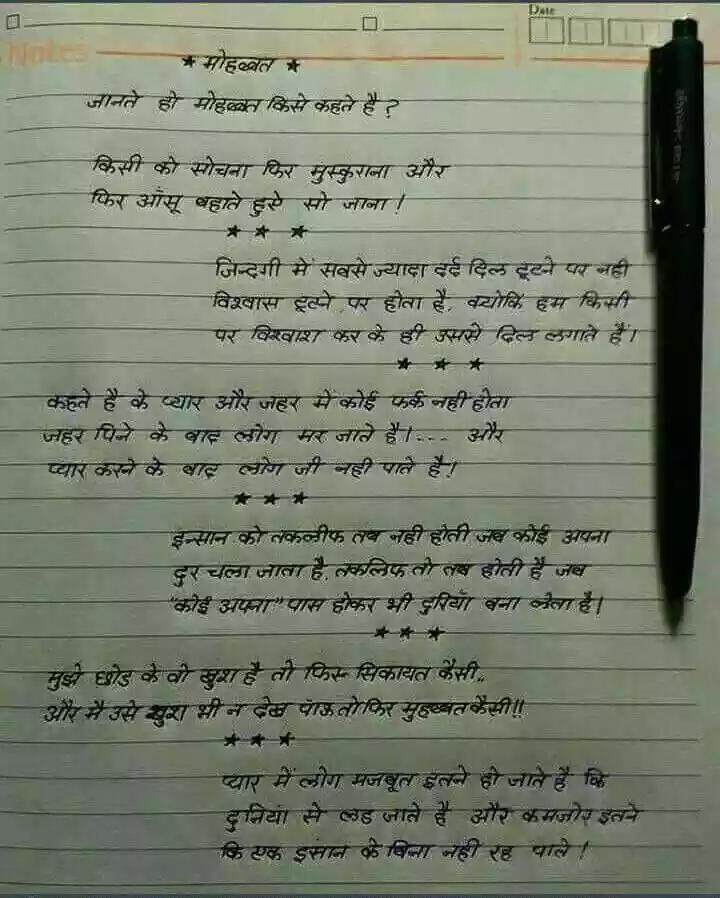 Date
Notes
★ मोहब्बत ★
जानते हो मोहब्बत किसे कहते है ?
किसी को सोचना फिर मुस्कुराना और
फिर आँसू बहाते हुसे सो जाना !
★ ★ ★
जिन्दगी में सबसे ज्यादा दर्द दिल टूटने पर नही
विश्वास टूटने पर होता है, क्योकि हम किसी
पर विश्वाश कर के ही उससे दिल लगाते हैं।
★ ★ ★
कहते है के प्यार और जहर में कोई फर्क नही होता
जहर पिने के बाद लोग मर जाते है।... और
प्यार करने के बाद लोग जी नही पाते है!
★ ★ ★
इन्सान को तकलीफ तब नही होती जब कोई अपना
दुर चला जाता है, तकलिफ तो तब होती है जब
"कोई अपना" पास होकर भी दुरियाँ बना लेता है।
★ ★ ★
मुझे छोड के वो खुश है तो फिर सिकायत कैसी..
और मै उसे खुश भी न देख पाँऊ तो फिर मुहब्बत कैसी!!
★ ★ ★
प्यार में लोग मजबूत इतने हो जाते है कि
दुनियां से लड जाते है और कमजोर इतने
कि एक इंसान के बिना नही रह पाते !